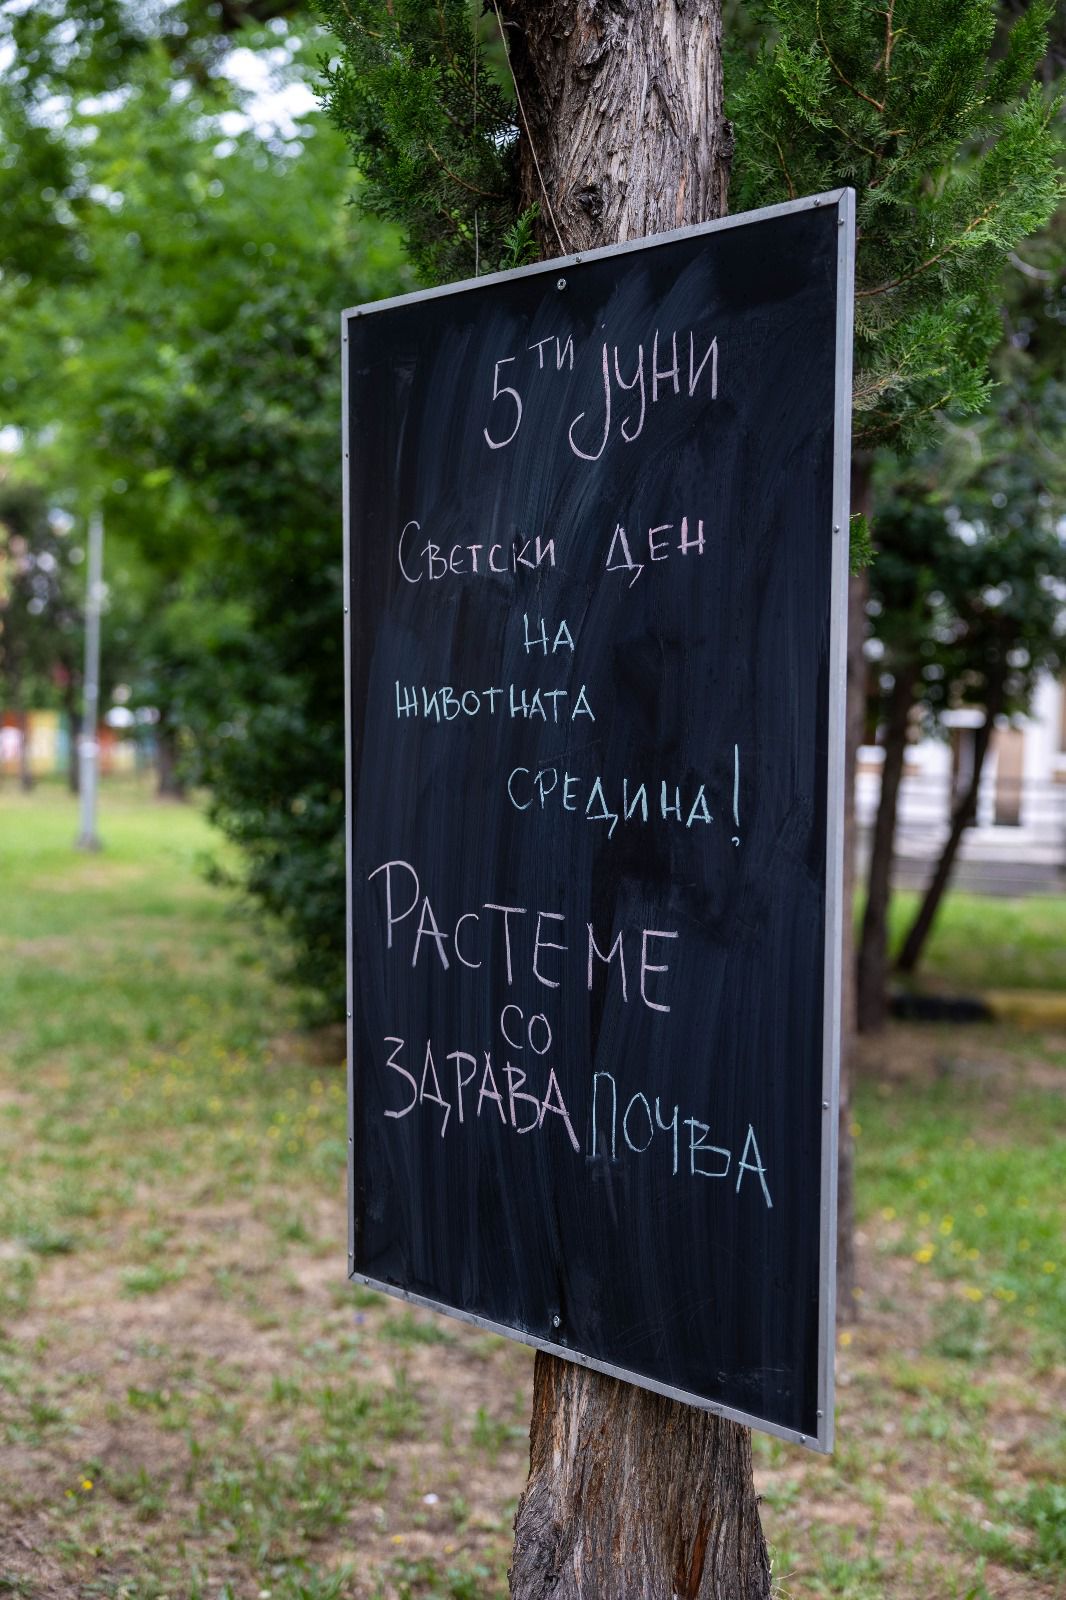 5ти јуни
Светски ден
на
животната
средина!
Растеме
со
здрава почва